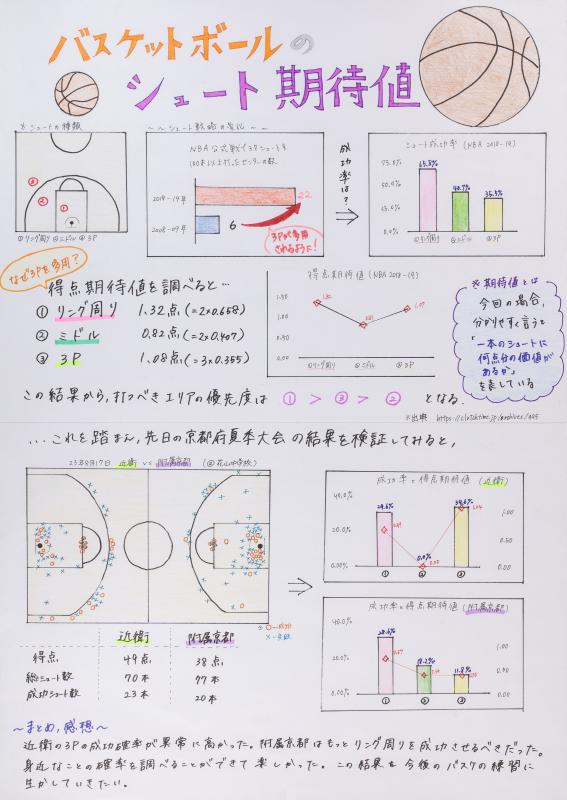 バスケットボールの
シュート期待値
※シュートの種類
③
②
①
①リング周り ②ミドル ③3P
〜シュート戦略の変化〜
NBA公式戦で3Pシュートを
100本以上打ったセンターの数
2018-19年
22
2008-09年
6
3Pが多用
されるように!
成功率は?
シュート成功率(NBA 2018-19)
75.0%
60.0%
45.0%
0.0%
65.8%
40.7%
35.5%
①リング周り ②ミドル ③3P
なぜ3Pを多用?
得点期待値を調べると…
① リング周り 1.32点(=2×0.658)
② ミドル 0.82点(=2×0.407)
③ 3P 1.08点(=3×0.355)
得点期待値(NBA 2018-19)
1.50
1.00
0.50
0.00
①リング周り ②ミドル ③3P
※期待値とは
今回の場合、
分かりやすく言うと
「一本のシュートに
何点分の価値が
あるか」
を表している
この結果から,打つべきエリアの優先度は ① > ③ > ② となる.
…これを踏まえ,先日の京都府夏季大会の結果を検証してみると,
23年8月17日 近衛 vs 附属京都 (@花山中学校)
○…成功
×…失敗
成功率と得点期待値(近衛)
40.0%
20.0%
0.00%
34.6%
0.0%
1.00
0.50
0.00
① ② ③
成功率と得点期待値(附属京都)
40.0%
20.0%
0.00%
28.6%
18.2%
11.8%
1.00
0.50
0.00
① ② ③
近衛 附属京都
得点 49点 38点
総シュート数 70本 77本
成功シュート数 23本 20本
〜まとめ,感想〜
近衛の3Pの成功確率が異常に高かった。附属京都はもっとリング周りを成功させるべきだった。
身近なことの確率を調べることができて楽しかった。この結果を今後のバスケの練習に
生かしていきたい。